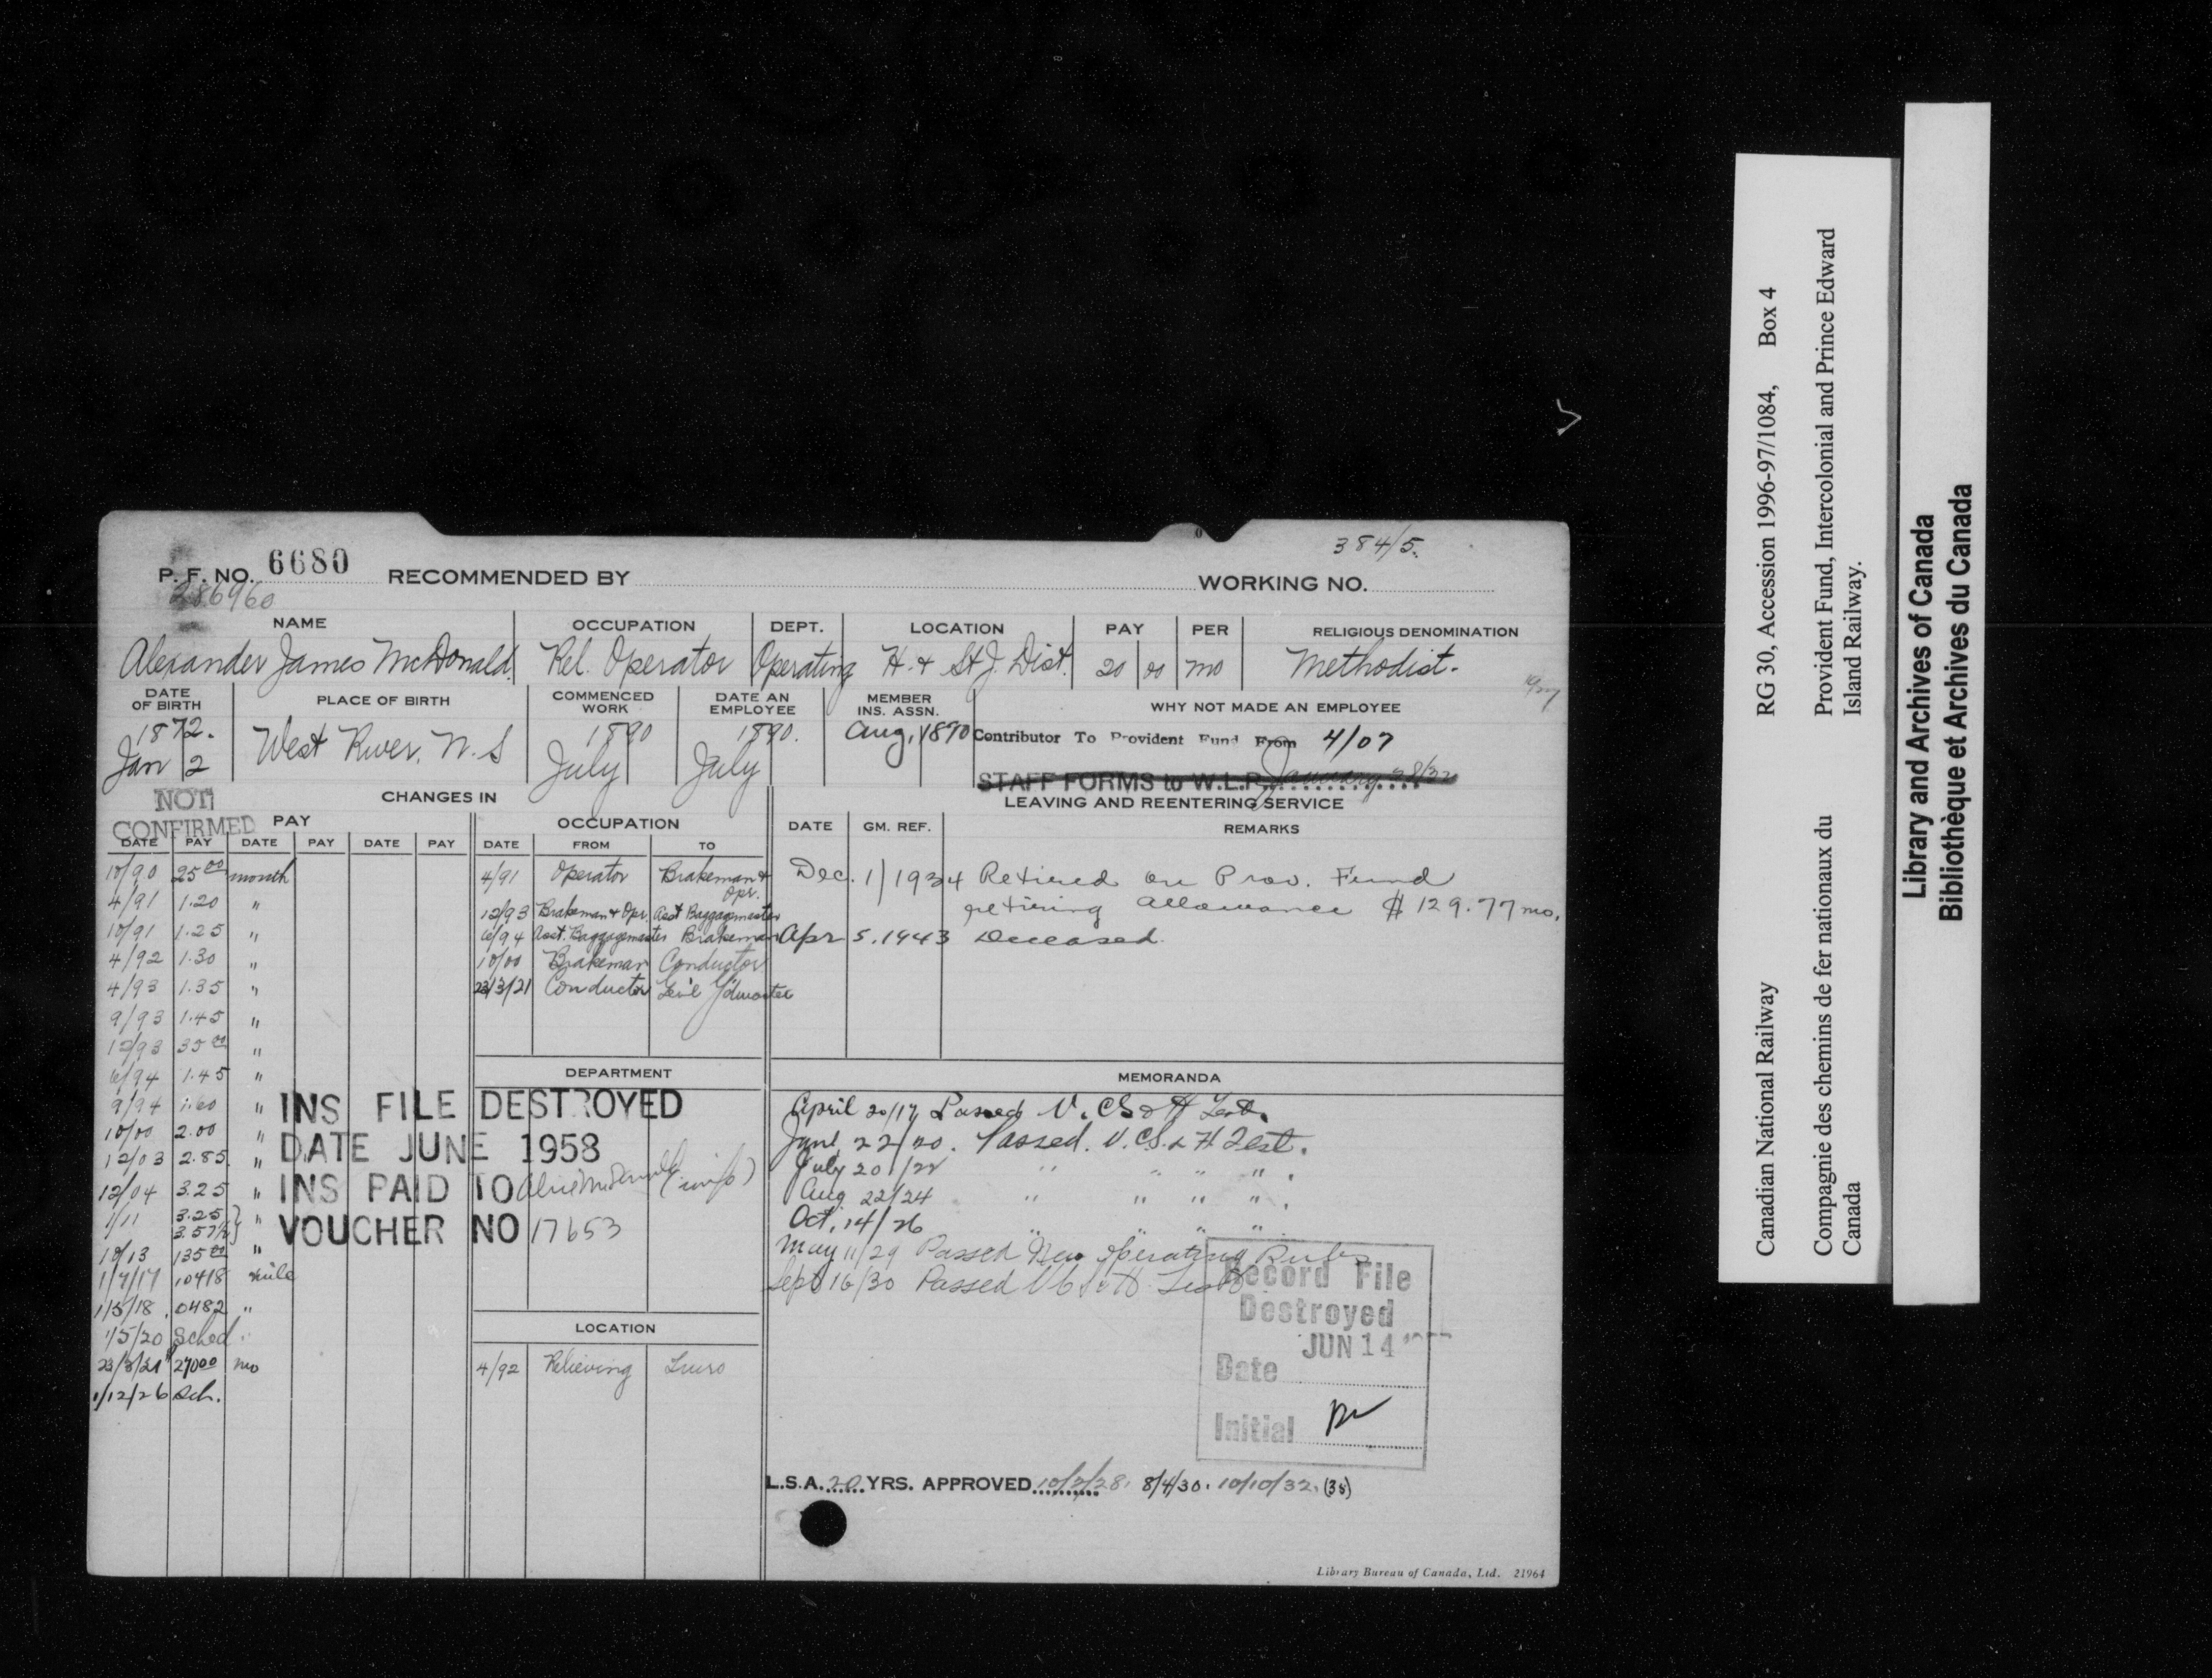 384/5.
P. F. NO. 6680 RECOMMENDED BY WORKING NO.
286960
NAME OCCUPATION DEPT. LOCATION PAY PER RELIGIOUS DENOMINATION
Alexander James McDonald Rel. Operator Operating H. & St J. Dist. 20 00 mo Methodist.
DATE OF BIRTH PLACE OF BIRTH COMMENCED WORK DATE AN EMPLOYEE MEMBER INS. ASSN. WHY NOT MADE AN EMPLOYEE
1872. Jan 2 West River, N. S 1890 July 1890. July Aug. 1890 Contributor To Provident Fund From 4/07
STAFF FORMS to W.L.P. January 28/32
NOT CONFIRMED
CHANGES IN
LEAVING AND REENTERING SERVICE
PAY OCCUPATION
DATE PAY DATE PAY DATE PAY DATE FROM TO DATE GM. REF. REMARKS
10/90 25 00 month
4/91 1.20 "
10/91 1.25 "
4/92 1.30 "
4/93 1.35 "
9/93 1.45 "
12/93 35 00 "
6/94 1.45 "
9/94 1.60 "
10/00 2.00 "
12/03 2.85 "
12/04 3.25 "
1/11 3.25 "
3.57½
10/13 135 00 "
1/7/17 .0418 mile
1/5/18 .0482 "
1/5/20 Sched.
23/3/21 27000 mo
1/12/26 Sch.
4/91 Operator Brakeman & Opr.
12/93 Brakeman & Opr. Asst Baggagemaster
6/94 Asst. Baggagemaster Brakeman
10/00 Brakeman Conductor
23/3/21 Conductor Gen'l Y'dmaster
Dec. 1/1934 Retired on Prov. Fund
retiring allowance $129.77 mo.
Apr 5. 1943 Deceased.
DEPARTMENT
INS FILE DESTROYED
DATE JUNE 1958
INS PAID TO (wife)
VOUCHER NO 17653
LOCATION
4/92 Relieving Truro
MEMORANDA
April 20/17 Passed V. CS & H Test.
June 22/20. Passed. V. CS. & H Test.
July 20/22 " " " " .
Aug 22/24 " " " " .
Oct. 14/26 " " " " .
May 11/29 Passed New Operating Rules
Sept 16/30 Passed V C S & H Test
Record File
Destroyed
JUN 14
Date
Initial
L.S.A. 20 YRS. APPROVED 10/2/28. 8/4/30. 10/10/32. (35)
Library Bureau of Canada, Ltd. 21964
Canadian National Railway RG 30, Accession 1996-97/1084, Box 4
Compagnie des chemins de fer nationaux du Canada
Provident Fund, Intercolonial and Prince Edward Island Railway.
Library and Archives of Canada
Bibliothèque et Archives du Canada